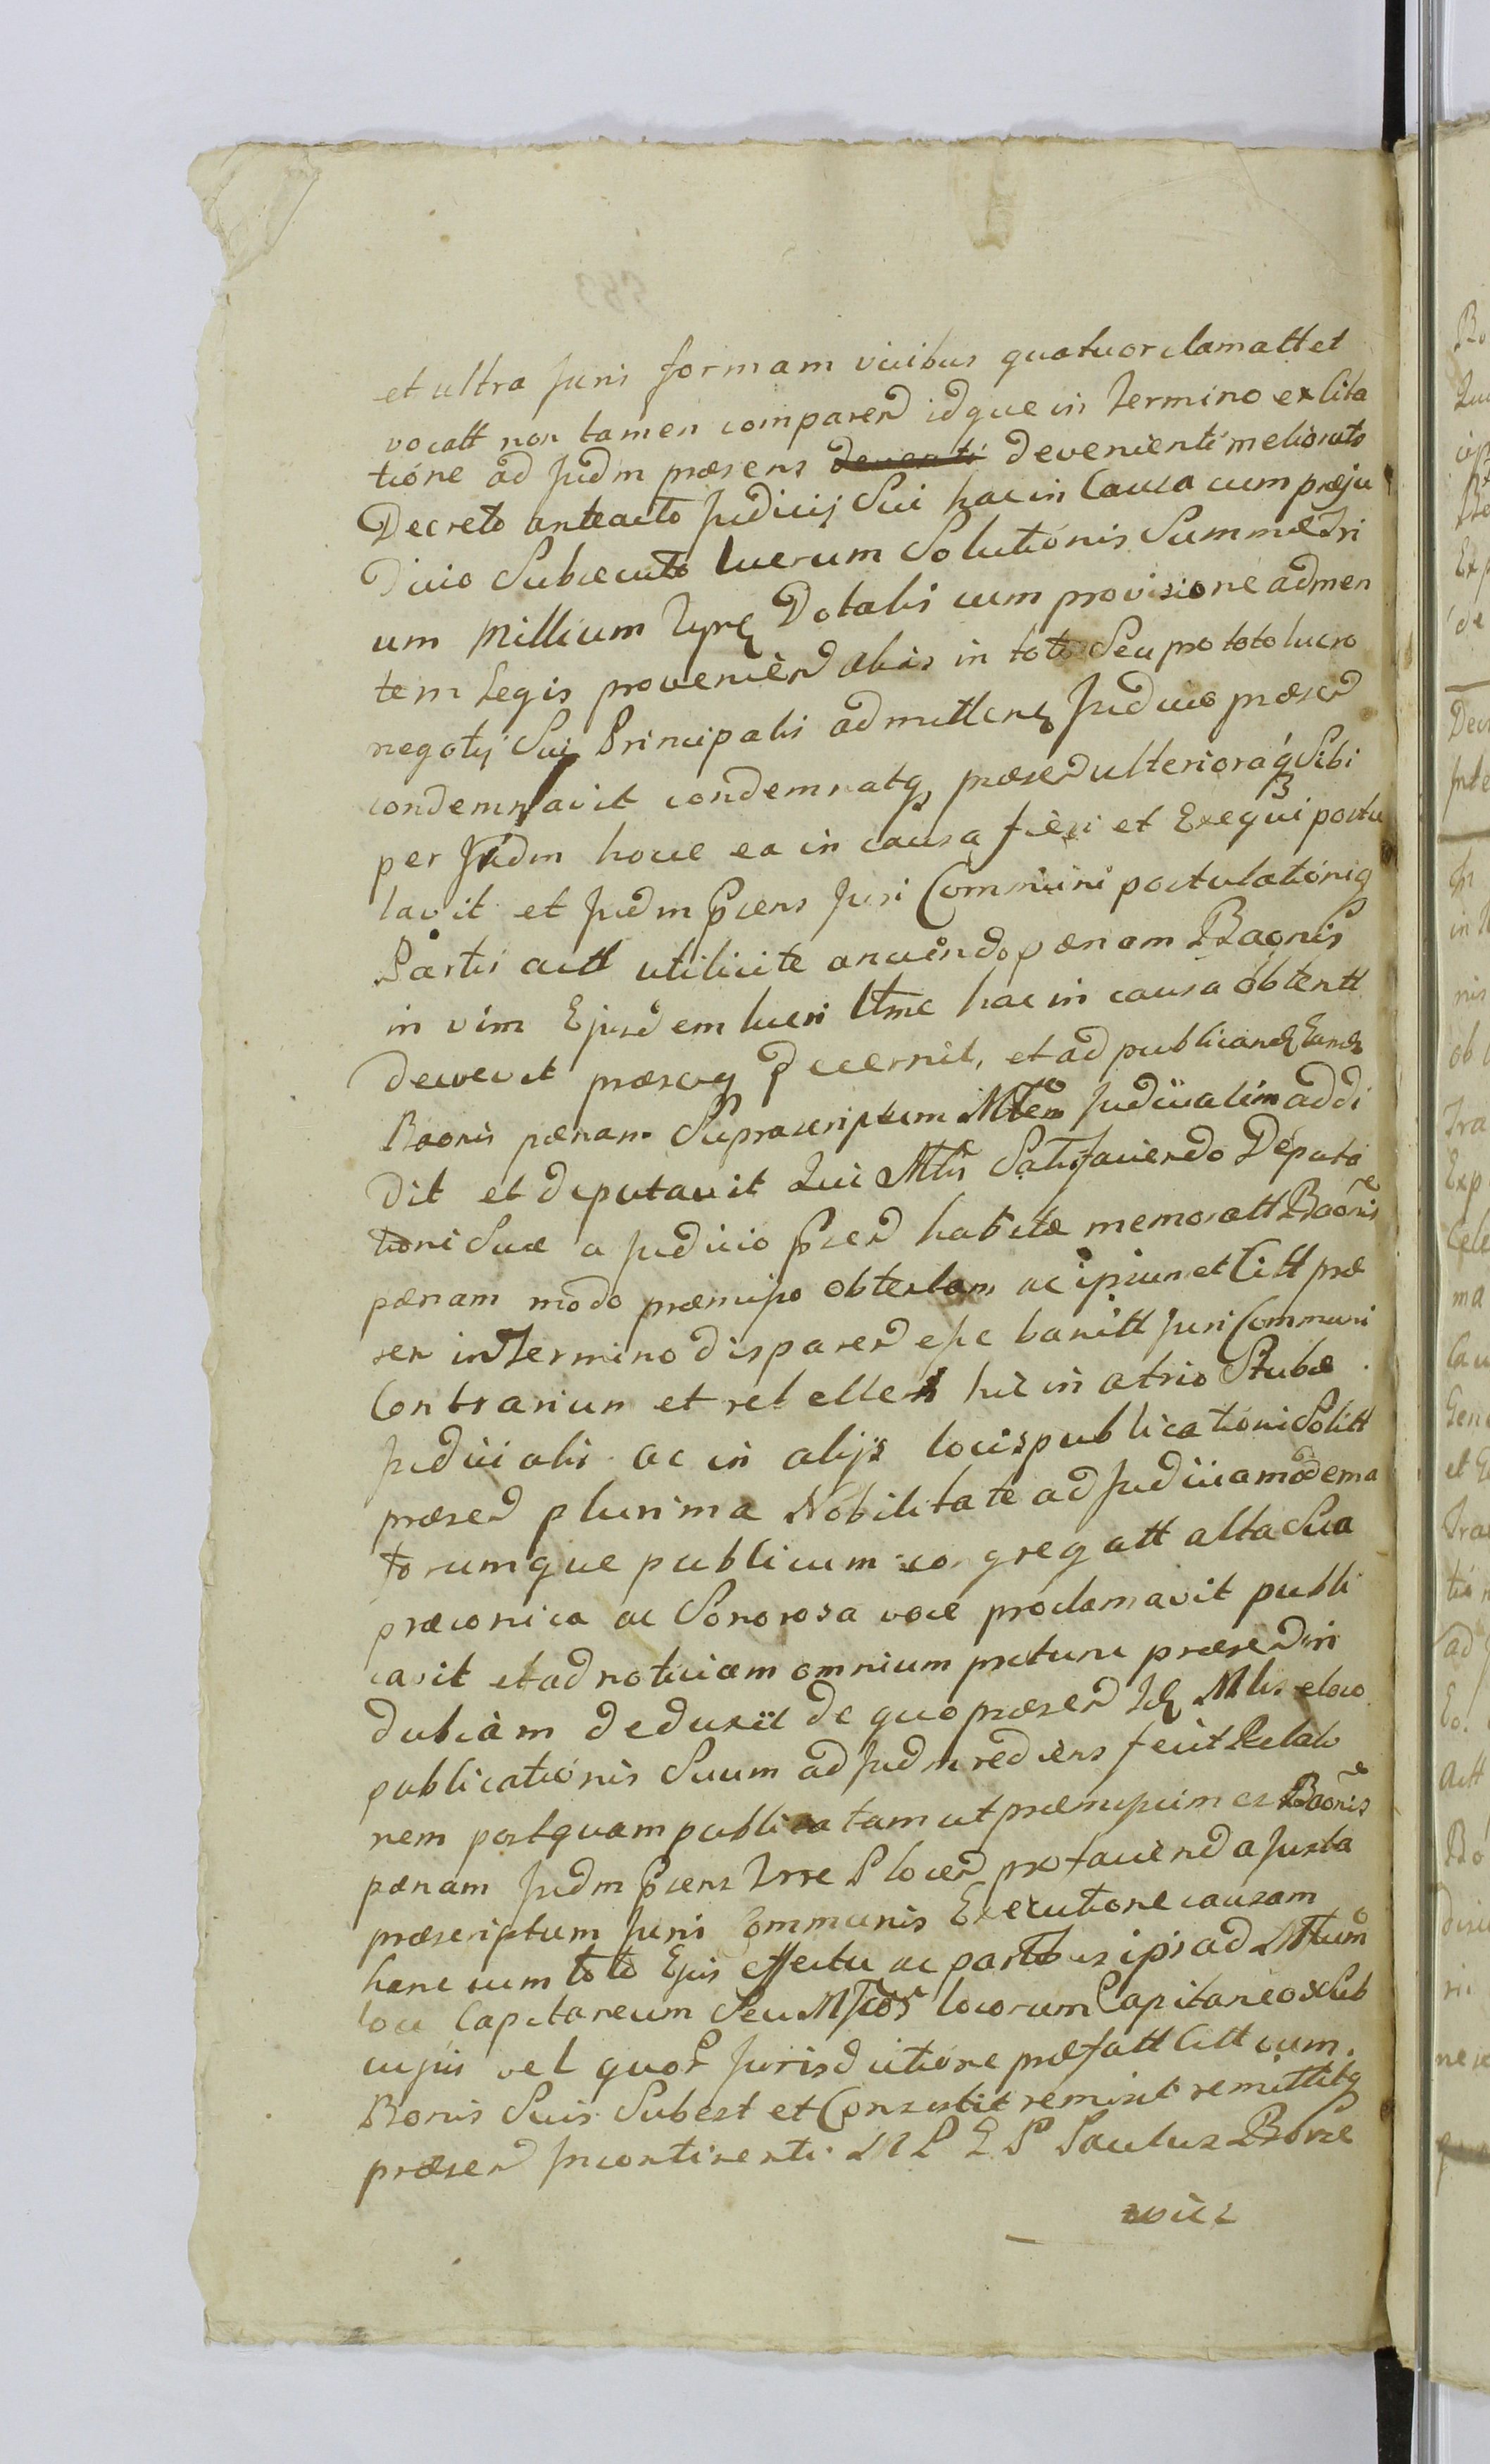 et ultra Juris formam vicibus quatuor clamatt et
vocatt non tamen comparen idque in Termino ex Cita
tione ad Judm præsens devenienti meliorato
Decreto anteacto Judicij Sui hac in Causa cum præju
dicio Subsecuto lucrum Solutionis Summæ Tri
um Millium Dotalis cum provisione ad men
tem Legis provenien alias in toto Seu pro toto lucro
negotij Sui Principalis admitten Judicio præsen
condemnavit condemnatq præsen ulterioraq Sibi
per Judm hocce ea in causa fieri et Exequi postu
lavit et Judm Psens Juri Communi postulationiq
Partis actt utilicite anuendo pænam Baonis
in vim Ejusdem lucri Ittme hac in causa obtentt
decrevit decernit, et ad publicand Eand
Baonis pænam Suprascriptum Mtem Judicialem addi
dit et deputavit Qui Mtlis Satisfaciendo Deputa
tioni Suæ a Judicio Psen habitæ memoratt Baonis
pænam modo præmisso obtentam ac ipsum et Citt præ
sen in Termino disparen esse banitt Juri Communi
Contrarium et rebellem hic in atrio Stubæ
Judicialis ac in alijs locis publicationi Solitt
præsen plurima Nobilitate ad Judicia moderna
forumque publicum congregatt alta Sua
præconica ac Sonorosa voce proclamavit publi
cavit et ad noticiam omnium præsen in
dubiam deduxit de quo præsen Id Mtlis e loco
publicationis Suum ad Judm rediens fecit Relatio
nem postquam publicatam ut præmissum es Baonis
pænam Judm Psens Trre Plocen pro facienda Juxta
præscriptum Juris Communis Executione causam
hanc cum toto Ejus effectu ac partibus ipis ad Mficum
loci Capitaneum Seu Mficos locorum Capitaneos Sub
cujus vel quor Jurisdictione præfatt Citt cum
Bonis Suis Subest et Consistit remisit remittitq
præsen Incontinenti M P E P Paulus Borze
wicz